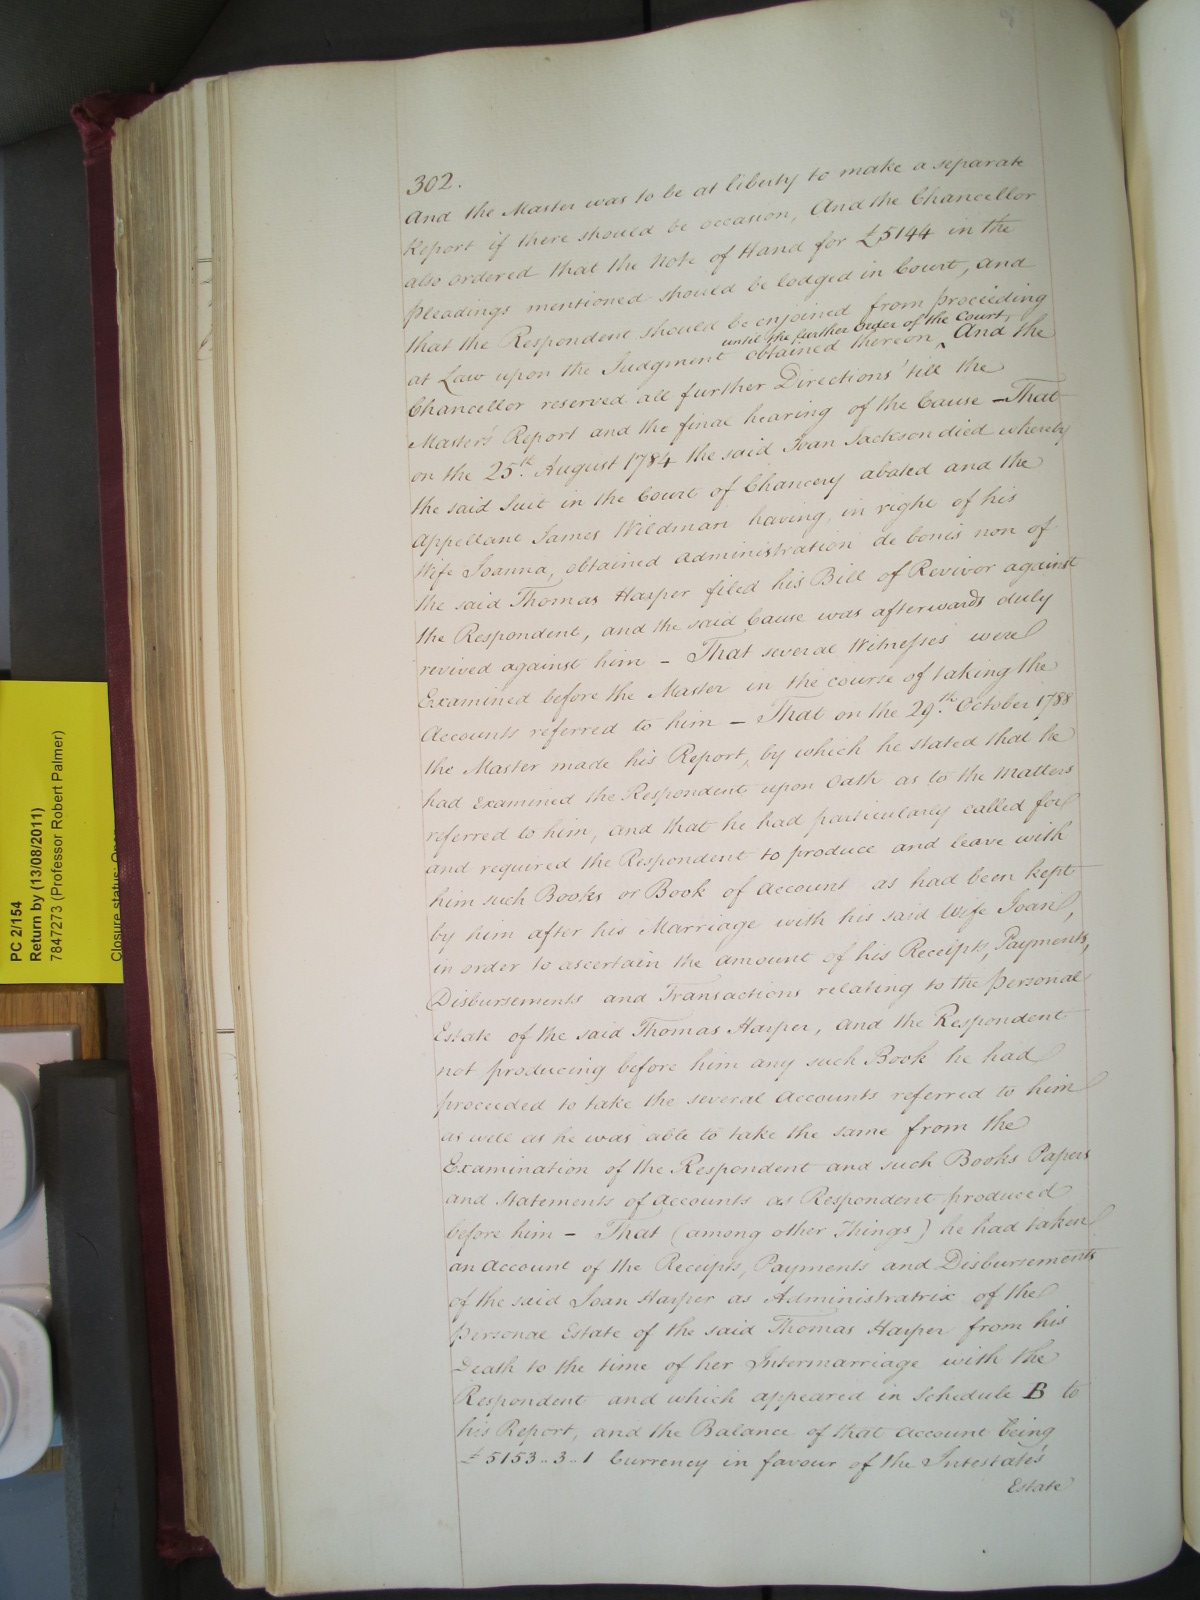 302.
And the Master was to be at liberty to make a separate
Report if there should be occasion, And the Chancellor
also ordered that the Note of Hand for £5144 in the
pleadings mentioned should be lodged in Court, and
that the Respondent should be enjoined from proceeding
until the further Order of the Court,
at Law upon the Judgment obtained thereon, And the
Chancellor reserved all further Directions till the
Master's Report and the final hearing of the Cause - That
on the 25th. August 1784 the said Joan Jackson died whereby
the said Suit in the Court of Chancery abated and the
appellant James Wildman having, in right of his
Wife Joanna, obtained Administration de bonis non of
the said Thomas Harper filed his Bill of Revivor against
the Respondent, and the said Cause was afterwards duly
revived against him - That several Witnesses were
Examined before the Master in the course of taking the
Accounts referred to him - That on the 29th. October 1788
the Master made his Report, by which he stated that he
had Examined the Respondent upon Oath as to the Matters
referred to him, and that he had particularly called for
and required the Respondent to produce and leave with
him such Books or Book of Account as had been kept
by him after his Marriage with his said Wife Joan,
in order to ascertain the amount of his Receipts, Payments,
Disbursements and Transactions relating to the personal
Estate of the said Thomas Harper, and the Respondent
not producing before him any such Book he had
proceeded to take the several Accounts referred to him
as well as he was able to take the same from the
Examination of the Respondent and such Books Papers
and Statements of Accounts as Respondent produced
before him - That (among other Things) he had taken
an Account of the Receipts, Payments and Disbursements
of the said Joan Harper as Administratrix of the
personal Estate of the said Thomas Harper from his
Death to the time of her Intermarriage with the
Respondent and which appeared in Schedule B to
his Report, and the Balance of that Account being
£5153..3..1 Currency in favour of the Intestate's
Estate
PC 2/154
Return by (13/08/2011)
7847273 (Professor Robert Palmer)
Closure status: Open